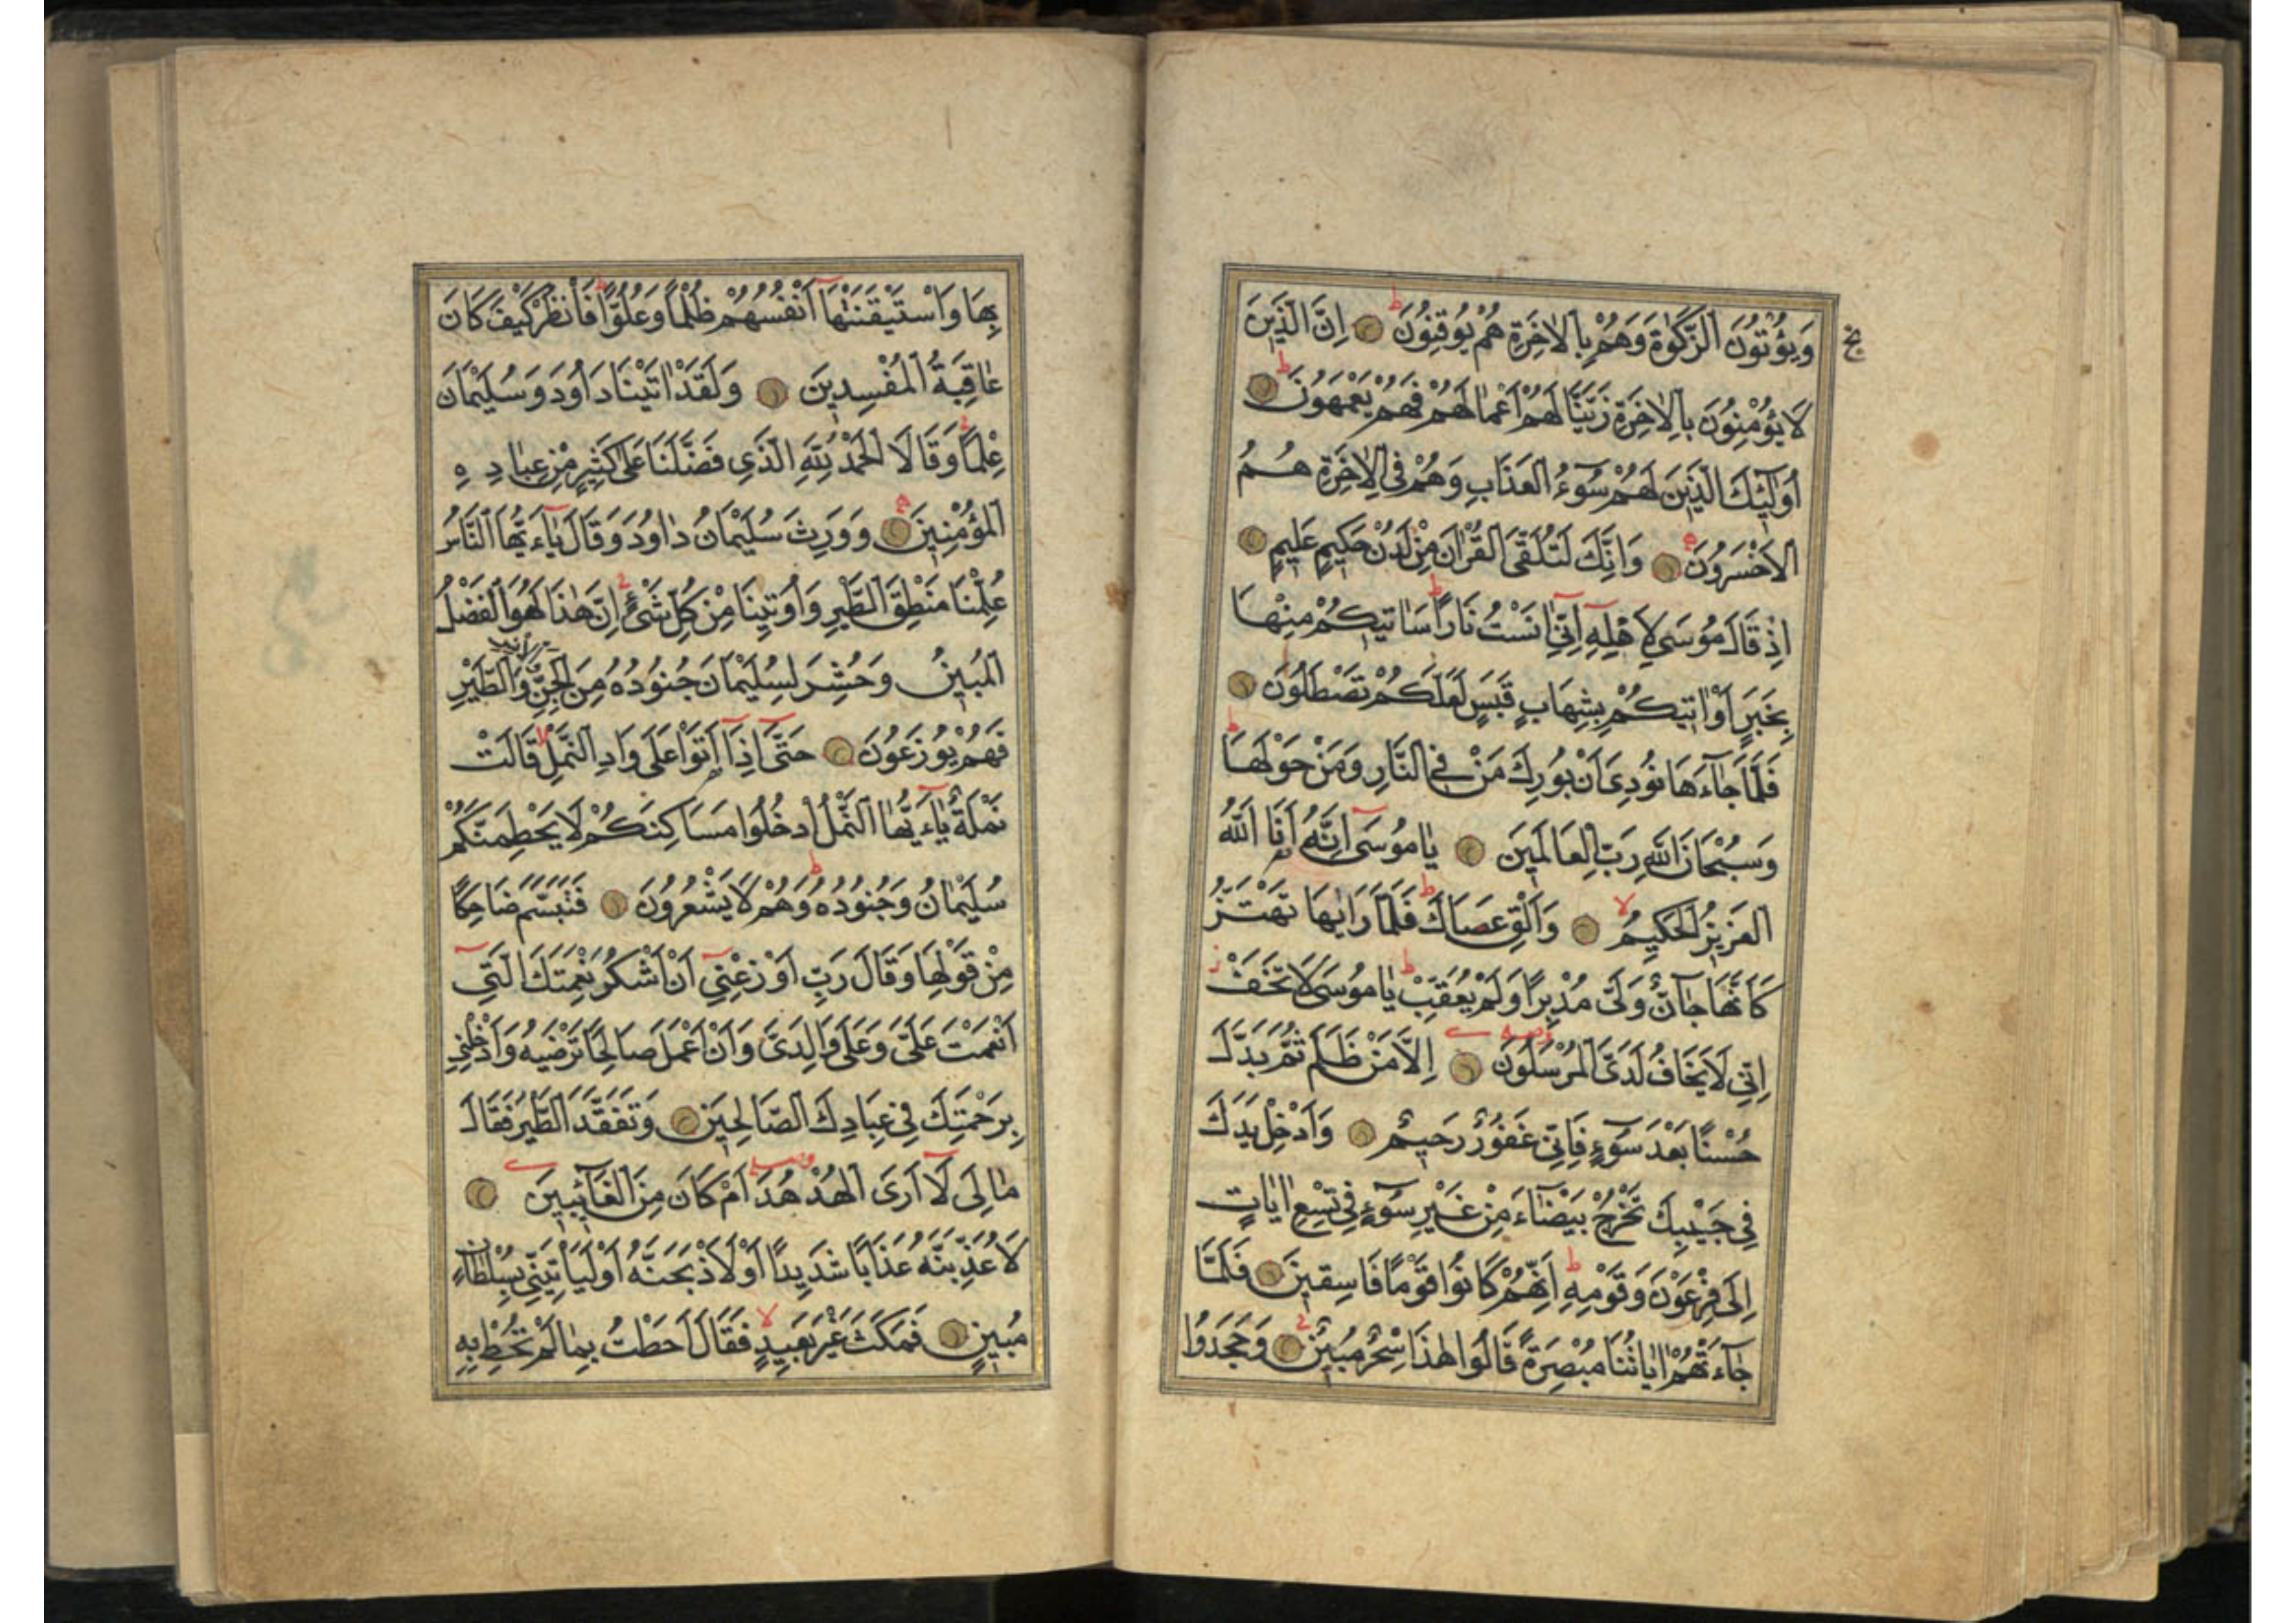 وَيُؤْتُونَ الزَّكٰوةَ وَهُمْ بِالْاٰخِرَةِ هُمْ يُوقِنُونَ اِنَّ الَّذِينَ
لَا يُؤْمِنُونَ بِالْاٰخِرَةِ زَيَّنَّا لَهُمْ اَعْمَالَهُمْ فَهُمْ يَعْمَهُونَ
اُولٰٓئِكَ الَّذِينَ لَهُمْ سُوٓءُ الْعَذَابِ وَهُمْ فِي الْاٰخِرَةِ هُمُ
الْاَخْسَرُونَ وَاِنَّكَ لَتُلَقَّى الْقُرْاٰنَ مِنْ لَدُنْ حَكِيمٍ عَلِيمٍ
اِذْ قَالَ مُوسَى لِاَهْلِهِٓ اِنِّٓي اٰنَسْتُ نَارًا سَاٰتِيكُمْ مِنْهَا
بِخَبَرٍ اَوْ اٰتِيكُمْ بِشِهَابٍ قَبَسٍ لَعَلَّكُمْ تَصْطَلُونَ
فَلَمَّا جَٓاءَهَا نُودِيَ اَنْ بُورِكَ مَنْ فِي النَّارِ وَمَنْ حَوْلَهَا
وَسُبْحَانَ اللّٰهِ رَبِّ الْعَالَمِينَ يَا مُوسَٓى اِنَّهُ اَنَا اللّٰهُ
الْعَزِيزُ الْحَكِيمُ وَاَلْقِ عَصَاكَ فَلَمَّا رَاٰهَا تَهْتَزُّ
كَاَنَّهَا جَٓانٌّ وَلَّى مُدْبِرًا وَلَمْ يُعَقِّبْ يَا مُوسَى لَا تَخَفْ
اِنِّي لَا يَخَافُ لَدَيَّ الْمُرْسَلُونَ اِلَّا مَنْ ظَلَمَ ثُمَّ بَدَّلَ
حُسْنًا بَعْدَ سُوٓءٍ فَاِنِّي غَفُورٌ رَحِيمٌ وَاَدْخِلْ يَدَكَ
فِي جَيْبِكَ تَخْرُجْ بَيْضَٓاءَ مِنْ غَيْرِ سُوٓءٍ فِي تِسْعِ اٰيَاتٍ
اِلَى فِرْعَوْنَ وَقَوْمِهِ اِنَّهُمْ كَانُوا قَوْمًا فَاسِقِينَ فَلَمَّا
جَٓاءَتْهُمْ اٰيَاتُنَا مُبْصِرَةً قَالُوا هٰذَا سِحْرٌ مُبِينٌ وَجَحَدُوا
بِهَا وَاسْتَيْقَنَتْهَٓا اَنْفُسُهُمْ ظُلْمًا وَعُلُوًّا فَانْظُرْ كَيْفَ كَانَ
عَاقِبَةُ الْمُفْسِدِينَ وَلَقَدْ اٰتَيْنَا دَاوُدَ وَسُلَيْمَانَ
عِلْمًا وَقَالَا الْحَمْدُ لِلّٰهِ الَّذِي فَضَّلَنَا عَلَى كَثِيرٍ مِنْ عِبَادِهِ
الْمُؤْمِنِينَ وَوَرِثَ سُلَيْمَانُ دَاوُدَ وَقَالَ يَٓاءَيُّهَا النَّاسُ
عُلِّمْنَا مَنْطِقَ الطَّيْرِ وَاُوتِينَا مِنْ كُلِّ شَيْءٍ اِنَّ هٰذَا لَهُوَ الْفَضْلُ
الْمُبِينُ وَحُشِرَ لِسُلَيْمَانَ جُنُودُهُ مِنَ الْجِنِّ وَالطَّيْرِ
فَهُمْ يُوزَعُونَ حَتَّٓى اِذَٓا اَتَوْا عَلَى وَادِ النَّمْلِ قَالَتْ
نَمْلَةٌ يَٓاءَيُّهَا النَّمْلُ ادْخُلُوا مَسَاكِنَكُمْ لَا يَحْطِمَنَّكُمْ
سُلَيْمَانُ وَجُنُودُهُ وَهُمْ لَا يَشْعُرُونَ فَتَبَسَّمَ ضَاحِكًا
مِنْ قَوْلِهَا وَقَالَ رَبِّ اَوْزِعْنِٓي اَنْ اَشْكُرَ نِعْمَتَكَ الَّتِٓي
اَنْعَمْتَ عَلَيَّ وَعَلَى وَالِدَيَّ وَاَنْ اَعْمَلَ صَالِحًا تَرْضٰيهُ وَاَدْخِلْنِي
بِرَحْمَتِكَ فِي عِبَادِكَ الصَّالِحِينَ وَتَفَقَّدَ الطَّيْرَ فَقَالَ
مَالِيَ لَٓا اَرَى الْهُدْهُدَ اَمْ كَانَ مِنَ الْغَٓائِبِينَ
لَاُعَذِّبَنَّهُ عَذَابًا شَدِيدًا اَوْ لَاَذْبَحَنَّهُ اَوْ لَيَأْتِيَنِّي بِسُلْطَانٍ
مُبِينٍ فَمَكَثَ غَيْرَ بَعِيدٍ فَقَالَ اَحَطْتُ بِمَا لَمْ تُحِطْ بِهِ